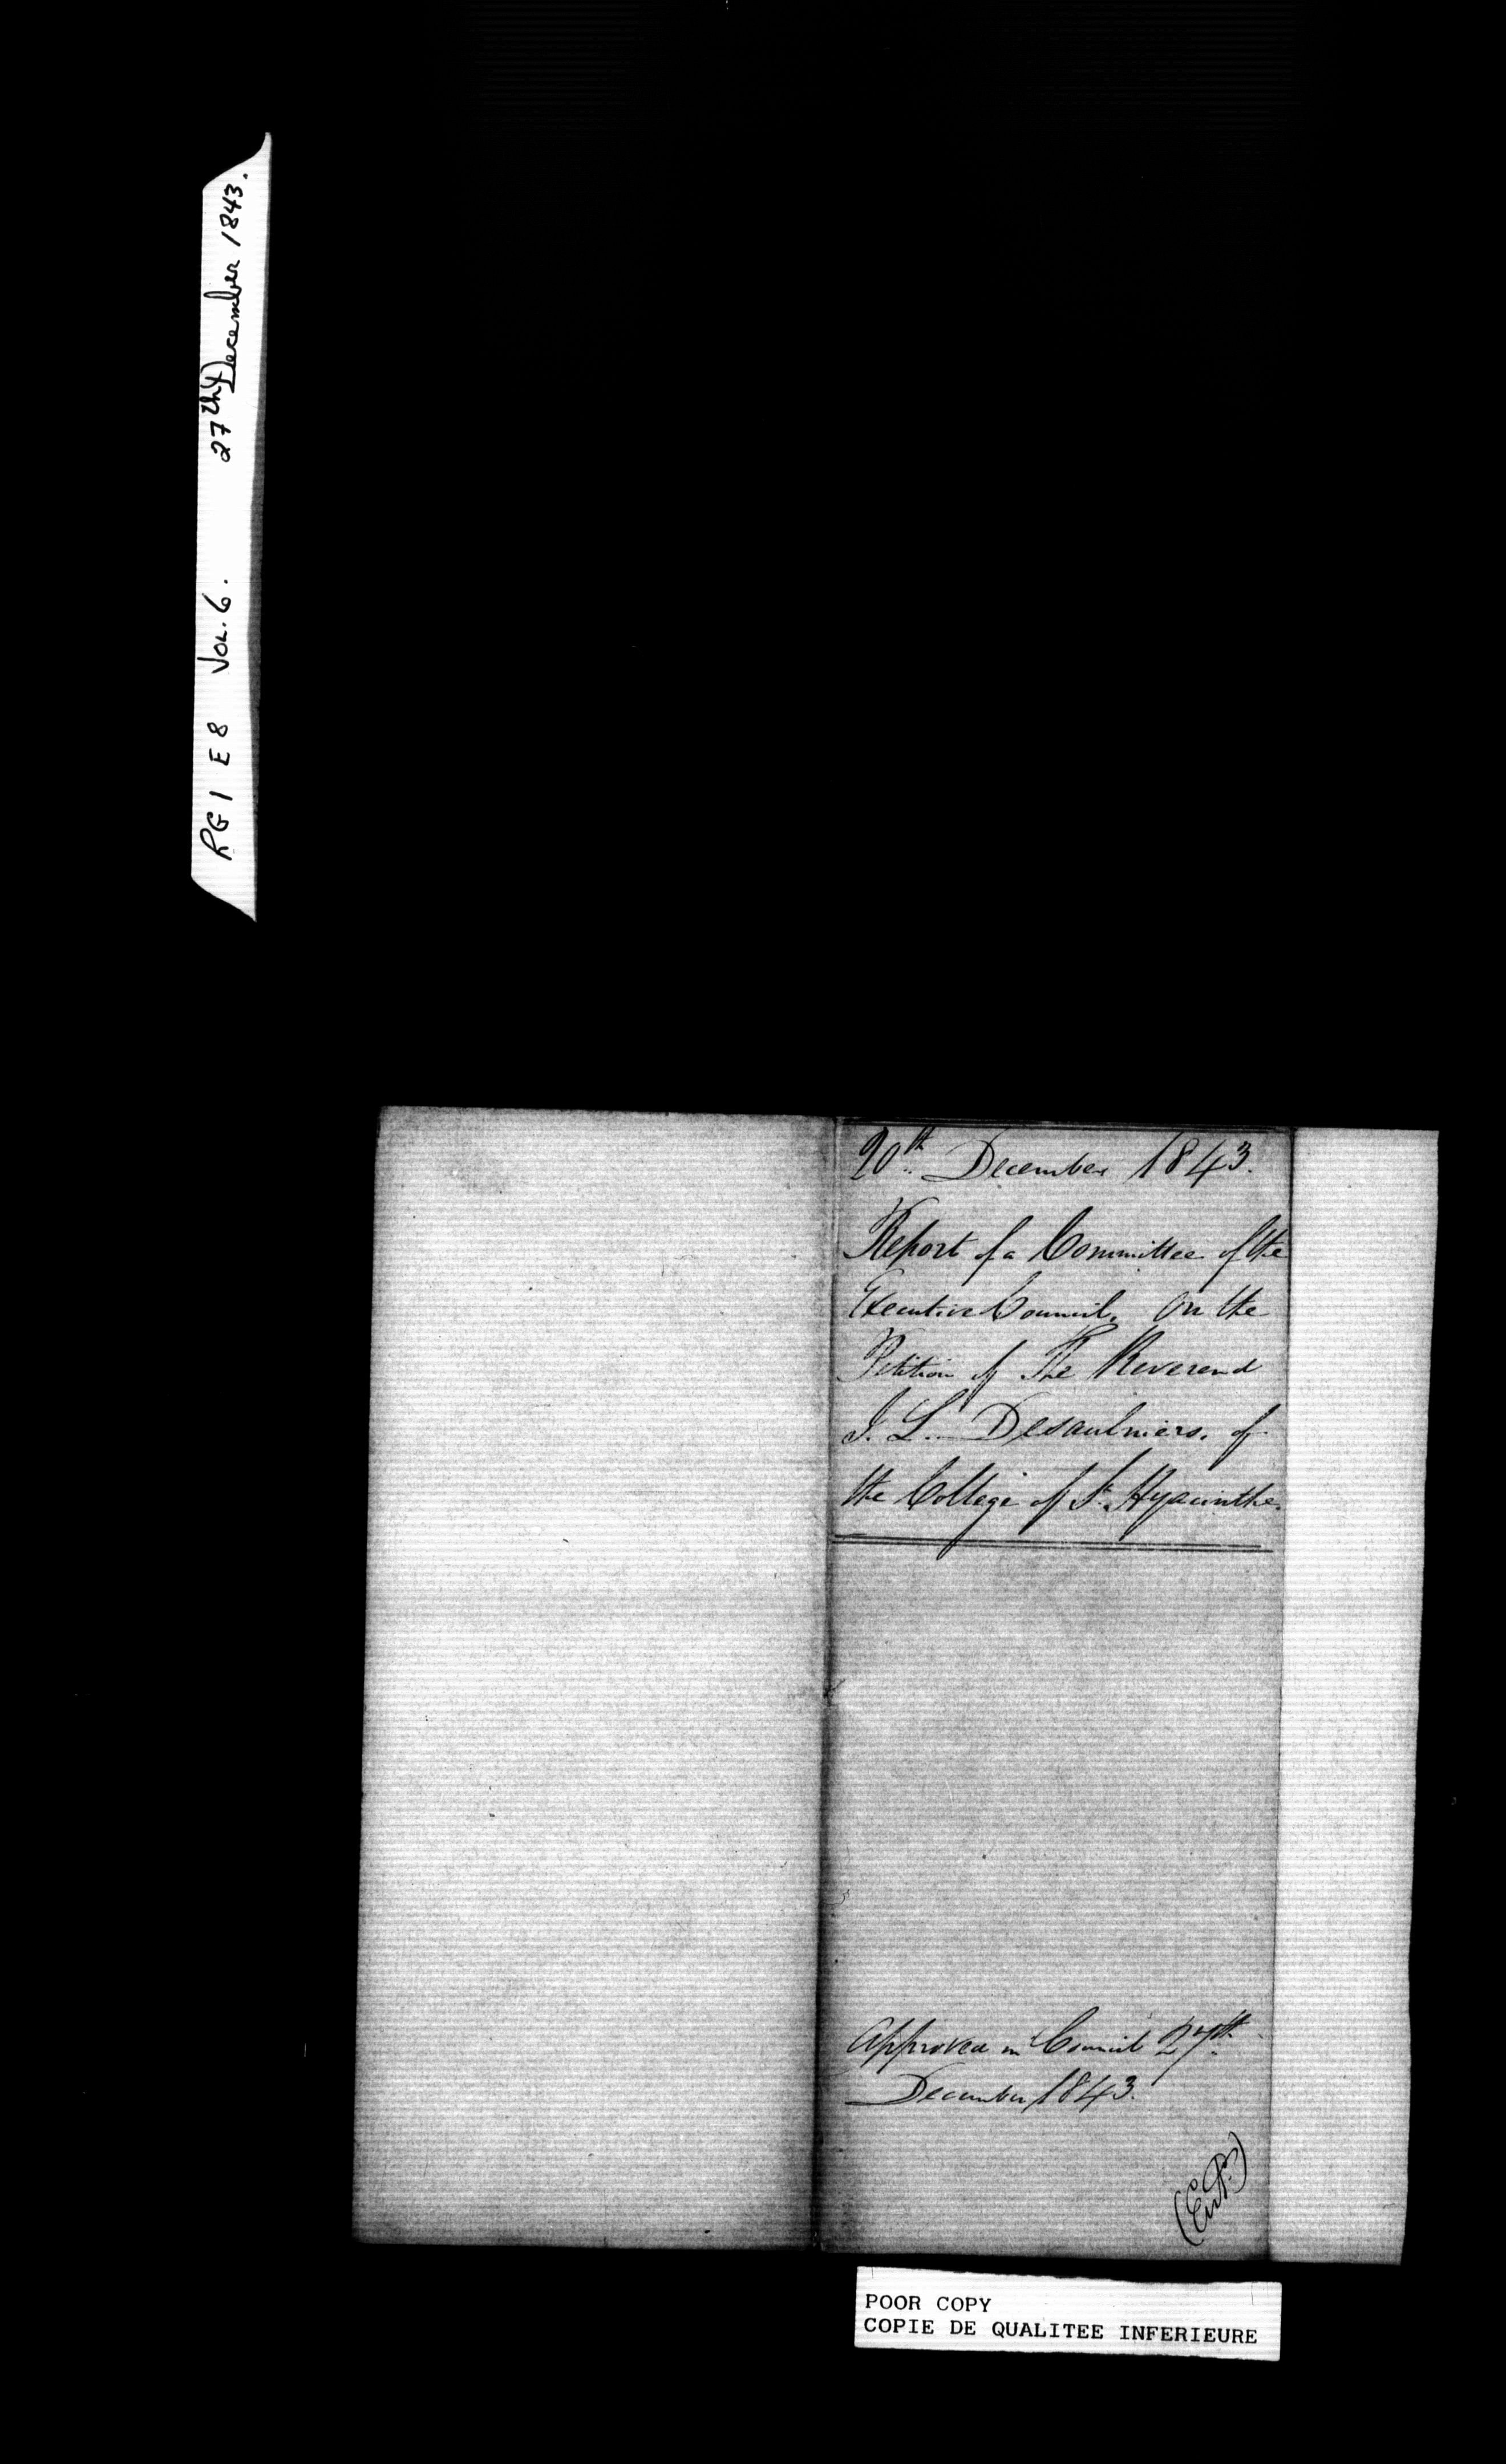 RG1 E8 Vol. 6. 27th December 1843.
20th December 1843.
Report of a Committee of the
Executive Council, on the
Petition of The Reverend
I. L. Desaulniers, of
the College of St. Hyacinthe.
Approved in Council 27th
December 1843.
POOR COPY
COPIE DE QUALITEE INFERIEURE